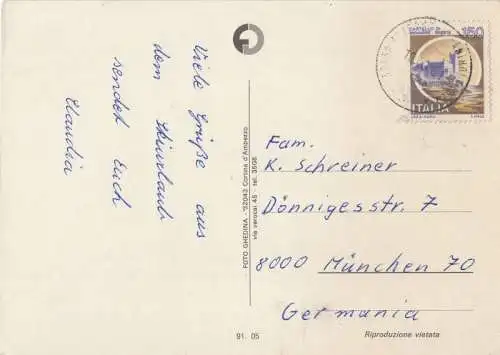 Viele Grüße aus
dem Skiurlaub
sendet Euch
Claudia
FOTO GHEDINA - 32043 Cortina d'Ampezzo
via verocai 45 - tel. 3606
150
CASTELLO DI
ITALIA
Fam.
K. Schreiner
Dönnigesstr. 7
8000 München 70
Germania
91. 05
Riproduzione vietata